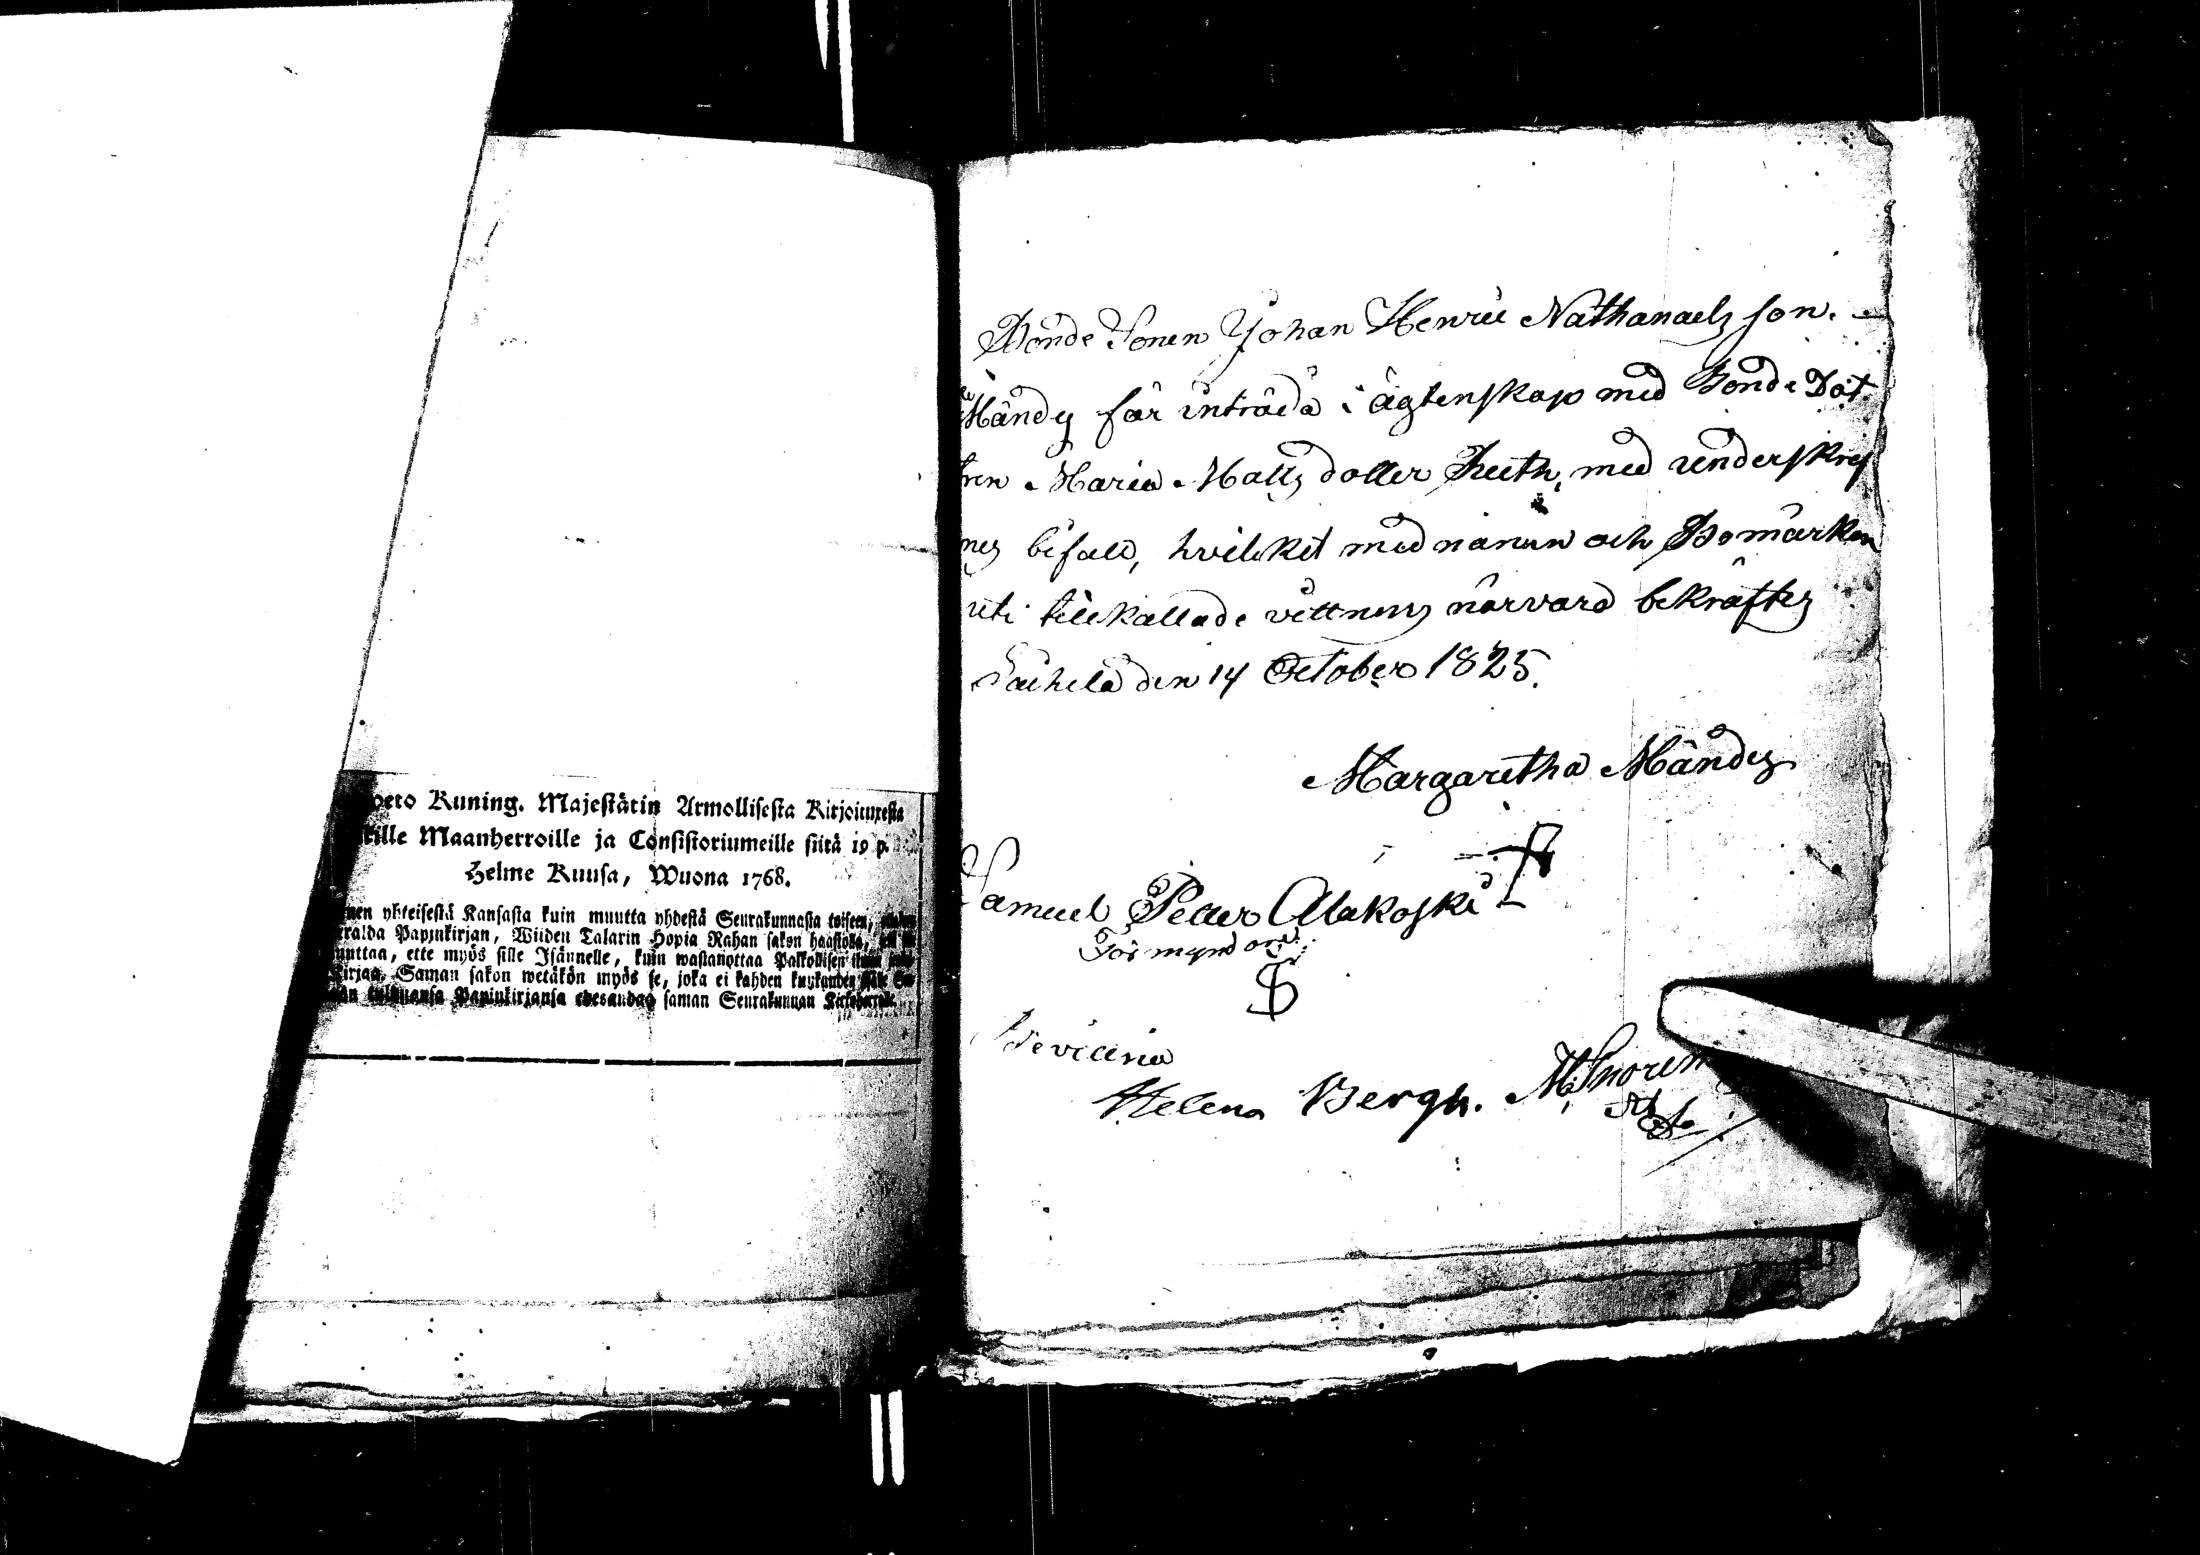 Kuning. Majestätin Armollisesta Kirjoituxesta
Maanherroille ja Consistoriumeille siitä 19 p.
Helme Kuusa, Wuona 1768.
yhteisestä Kansasta kuin muutta yhdestä Seurakunnasta toiseen,
Papinkirjan, Wiiden Talarin Hopia Rahan sakon haastolla,
muuttaa, ette myös sille Isännelle, kuin wastanottaa Palkollisen ilman
Kirjaa. Saman sakon wetäkön myös se, joka ei kahden kuukauden
Papinkirjansa edesanda saman Seurakunnan
Bonde Sonen Johan Henric Nathanaels son.
Mändy får inträda i ägtenskap med Bonde Döt
tren Maria Matts dotter Keeth, med underskref
nes bifall, hvilcket med namn och Bomärken
uti tillkallade vittnens närvaro bekräftes
den 14 October 1825.
Margaretha Mändy
Samuel Petter Alakoski
Förmyndare
Bevittna
Helena Bergh. M. Snorem